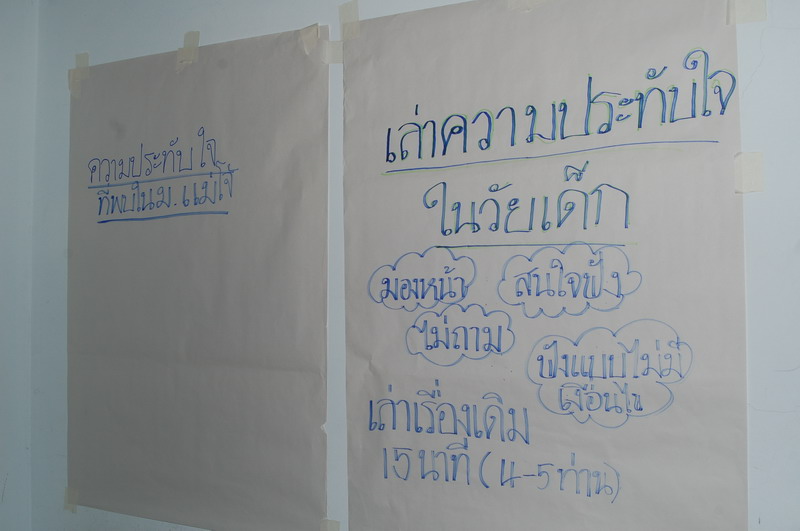 ความประทับใจ
ที่พบในม.แม่โจ้
เล่าความประทับใจ
ในวัยเด็ก
มองหน้า
สนใจฟัง
ไม่ถาม
ฟังแบบไม่มี
เงื่อนไข
เล่าเรื่องเดิม
15 นาที (4-5 ท่าน)